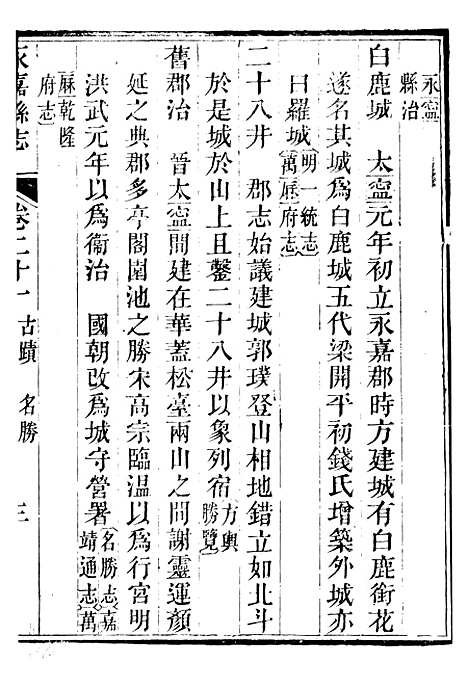 永寧
縣治
白鹿城　太寧元年初立永嘉郡時方建城有白鹿銜花
遂名其城爲白鹿城五代梁開平初錢氏增築外城亦
曰羅城明一統志
萬厯府志
二十八井　郡志始議建城郭璞登山相地錯立如北斗
於是城於山上且鑿二十八井以象列宿方輿
勝覽
舊郡治　晉太寧間建在華蓋松臺兩山之間謝靈運顏
延之典郡多亭閣園池之勝宋高宗臨溫以爲行宮明
洪武元年以爲衞治　國朝改爲城守營署名勝志嘉
靖通志萬
厤乾隆
府志
永嘉縣志　卷二十一　古蹟　名勝　三